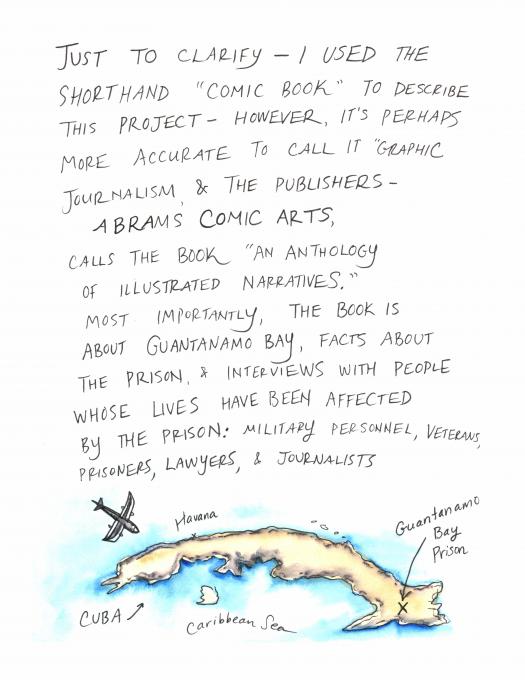 JUST TO CLARIFY – I USED THE
SHORTHAND "COMIC BOOK" TO DESCRIBE
THIS PROJECT – HOWEVER, IT'S PERHAPS
MORE ACCURATE TO CALL IT "GRAPHIC
JOURNALISM, & THE PUBLISHERS –
ABRAMS COMIC ARTS,
CALLS THE BOOK "AN ANTHOLOGY
OF ILLUSTRATED NARRATIVES."
MOST IMPORTANTLY, THE BOOK IS
ABOUT GUANTANAMO BAY, FACTS ABOUT
THE PRISON, & INTERVIEWS WITH PEOPLE
WHOSE LIVES HAVE BEEN AFFECTED
BY THE PRISON: MILITARY PERSONNEL, VETERANS,
PRISONERS, LAWYERS, & JOURNALISTS
Havana
Guantanamo
Bay
Prison
X
CUBA
Caribbean Sea